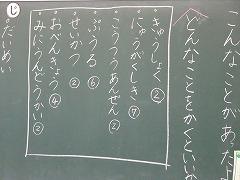 こんなことがあった
どんなことをかくといいか
。きゅうしょく②
。にゅうがくしき⑦
。こうつうあんぜん②
。ぷうる⑥
。せいかつ②
。おべんきょう④
。みにうんどうかい②
じ
。だいめい